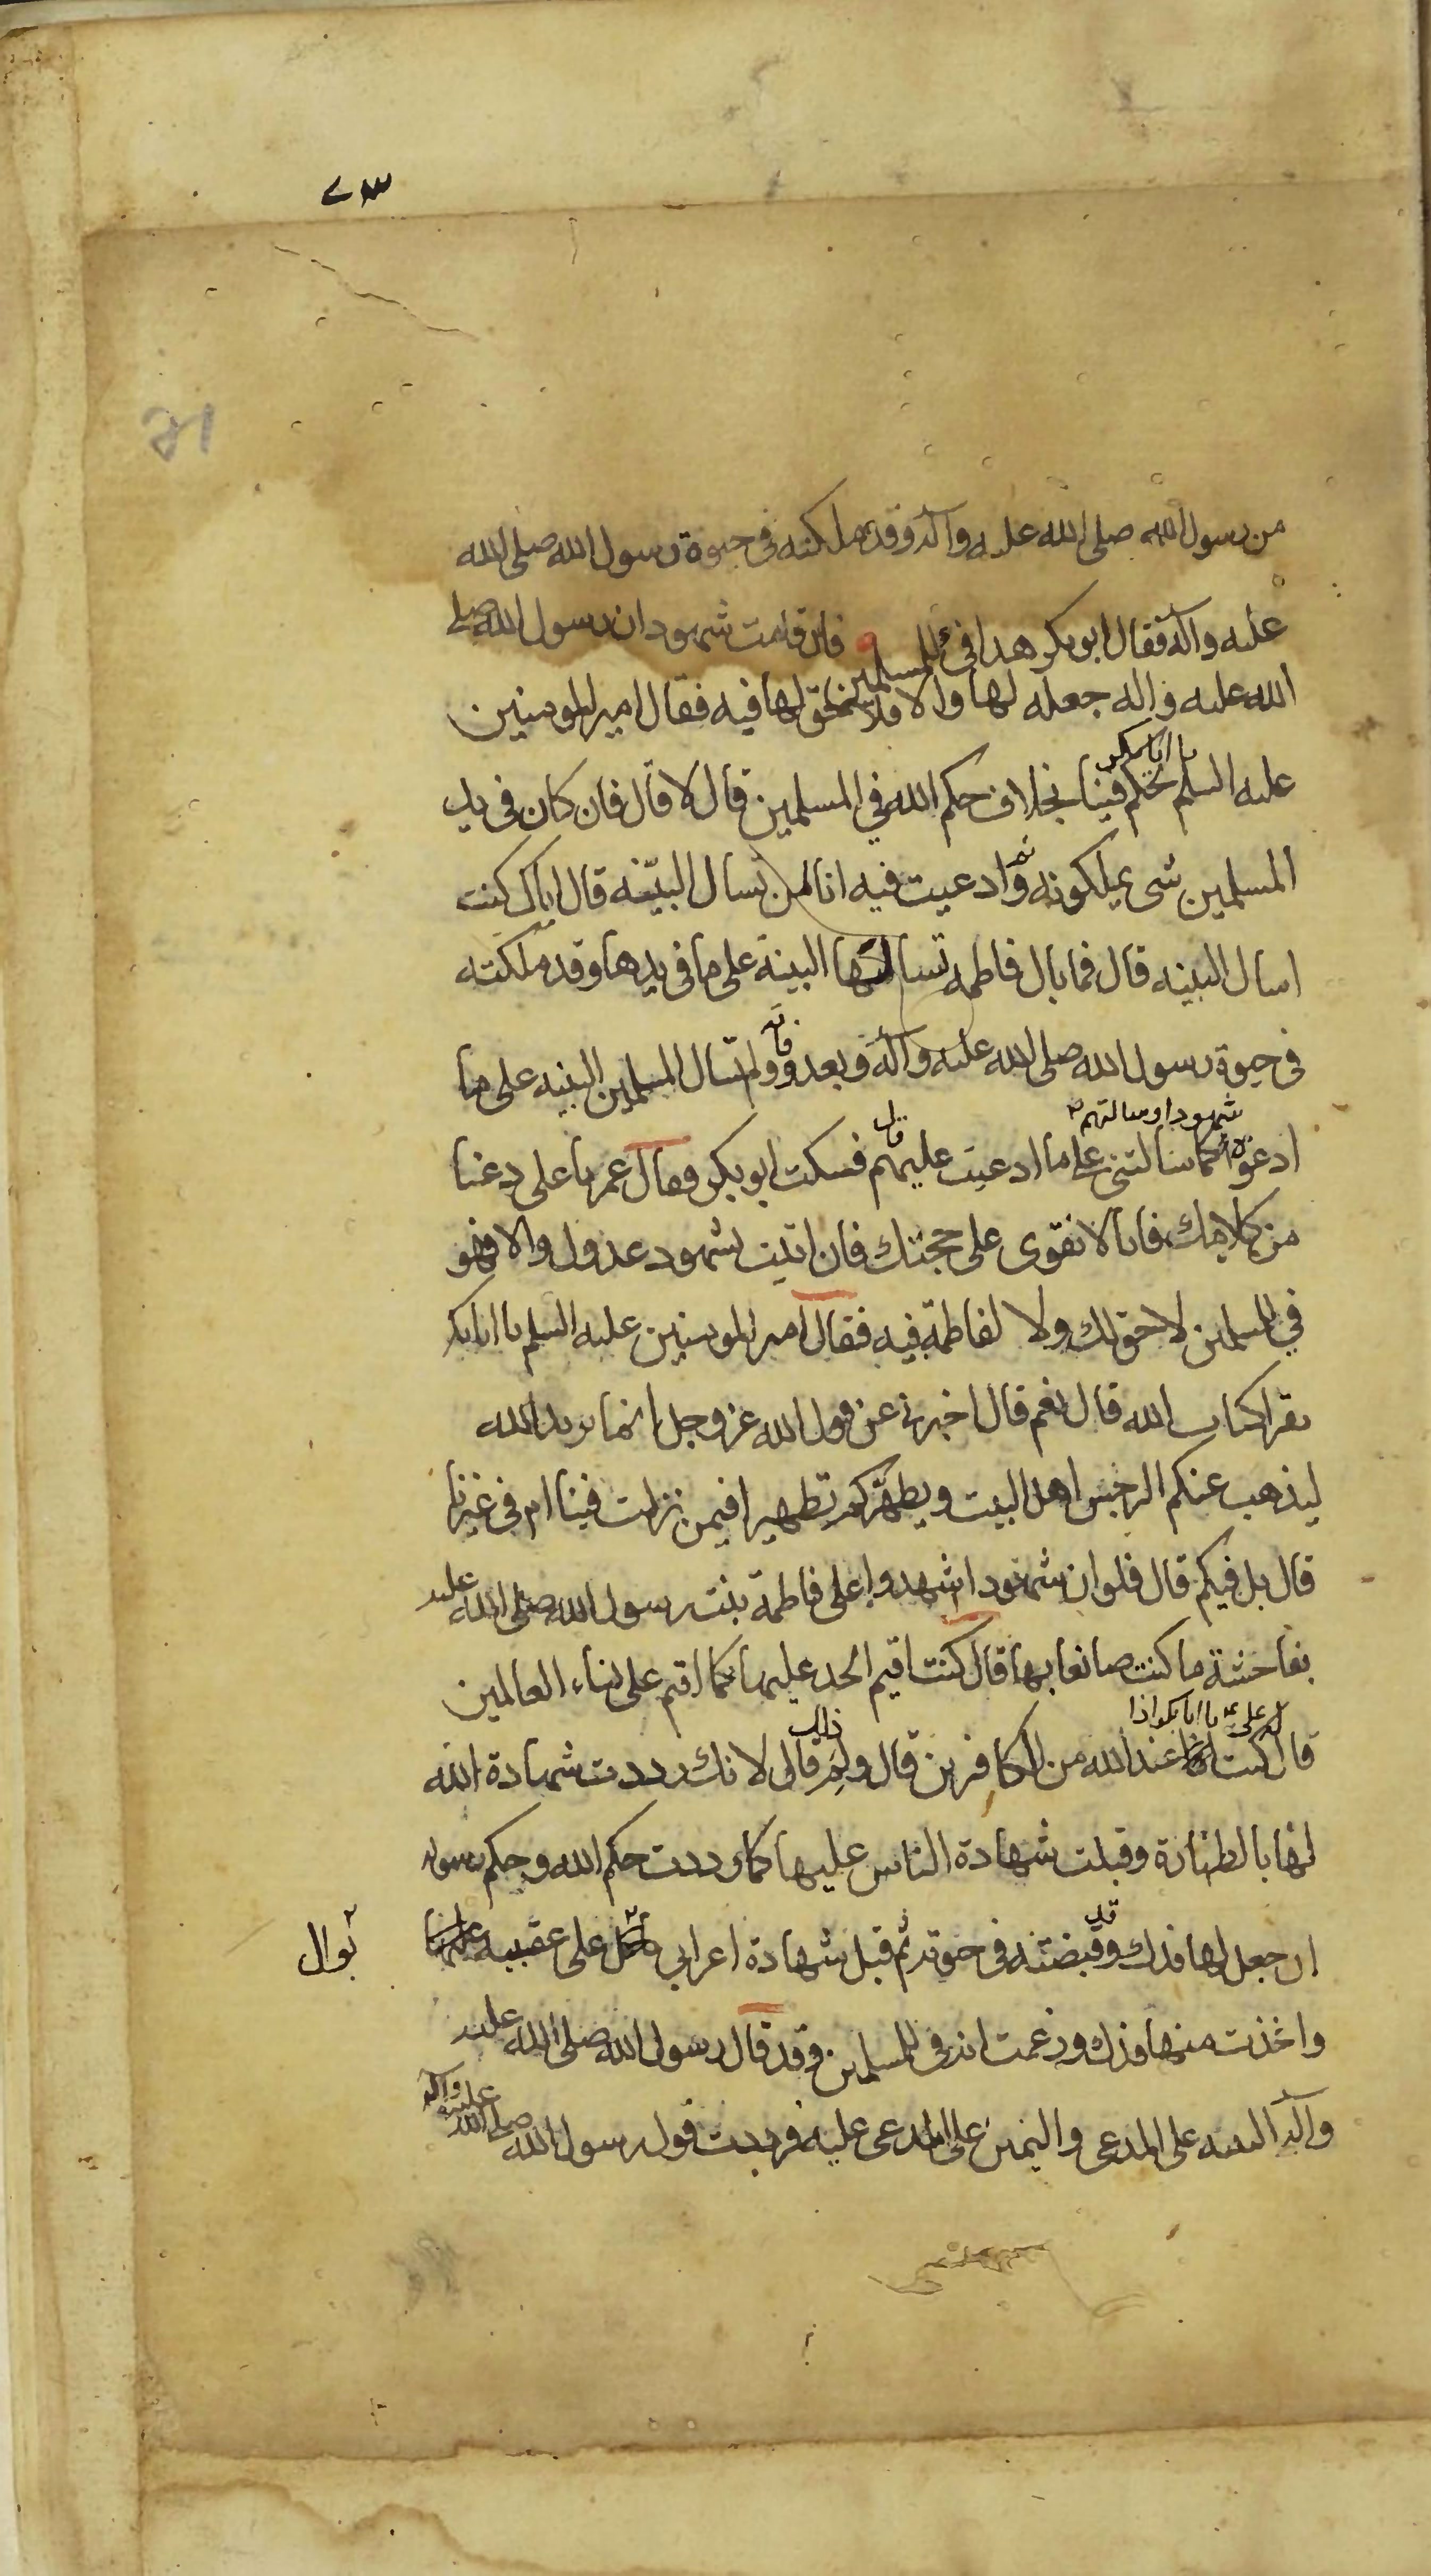 ٧٣
من رسول الله صلى الله عليه وآله وقد ملكته في حيوة رسول الله صلى الله
عليه وآله فقال ابو بكر هذا فئ للمسلمين فان اقامت شهودا ان رسول الله صلى
الله عليه وآله جعله لها والا فلا حق لها فيه فقال امير المومنين
عليه السلم يا ابا بكر تحكم فينا بخلاف حكم الله في المسلمين قال لا قال فان كان في يد
المسلمين شى يملكونه ثم ادعيت فيه انا لمن تسال البينة قال اياك كنت
اسال البينه قال فما بال فاطمه تسالها البينة على ما في يدها وقد ملكته
في حيوة رسول الله صلى الله عليه وآله وبعده ولم تسال المسلمين البينه على ما
ادعوه شهودا وسالتهم كما سالتنى على ما ادعيت عليهم قال فسكت ابو بكر فقال عمر يا على دعنا
من كلامك فانا لا نقوى على حجتك فان اتيت بشهود عدول والا فهو
في للمسلمين لا حق لك ولا لفاطمة فيه فقال امير المومنين عليه السلم يا ابا بكر
تقرا كتاب الله قال نعم قال اخبرنى عن قول الله عز وجل انما يريد الله
ليذهب عنكم الرجس اهل البيت ويطهركم تطهيرا فيمن نزلت فينا ام في غيرنا
قال بل فيكم قال فلو ان شهودا شهدوا على فاطمة بنت رسول الله صلى الله عليه
بفاحشة ما كنت صانعا بها قال كنت اقيم الحد عليها كما اقيم على نساء العالمين
قال له على ع يا ابا بكر اذا كنت عند الله من الكافرين قال ولم ذلك قال لانك رددت شهادة الله
لها بالطهارة وقبلت شهادة الناس عليها كما رددت حكم الله وحكم رسوله
ان جعل لها فدك وقد قبضته في حيوته ثم قبل شهادة اعرابي على عقبيه
بوال
واخذت منها فدك وزعمت انه في للمسلمين وقد قال رسول الله صلى الله عليه
وآله البينه على المدعى واليمين على المدعى عليه فرددت قول رسول الله صلى الله عليه وآله